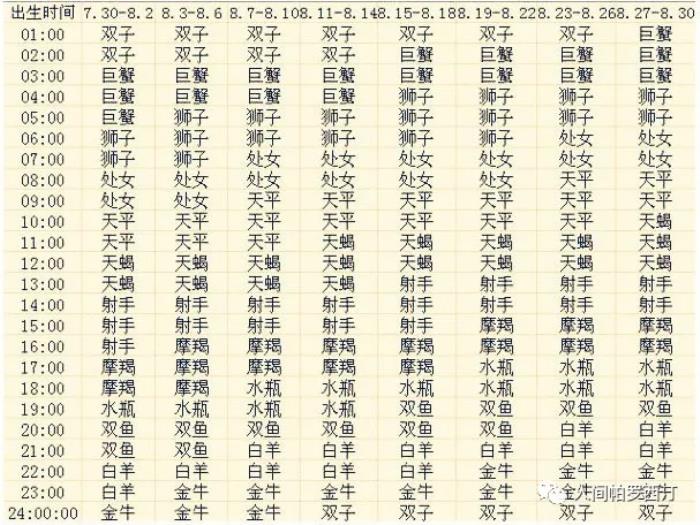 出生时间 7.30-8.2 8.3-8.6 8.7-8.10 8.11-8.14 8.15-8.18 8.19-8.22 8.23-8.26 8.27-8.30
01:00 双子 双子 双子 双子 双子 双子 双子 巨蟹
02:00 双子 双子 双子 双子 巨蟹 巨蟹 巨蟹 巨蟹
03:00 巨蟹 巨蟹 巨蟹 巨蟹 巨蟹 巨蟹 巨蟹 巨蟹
04:00 巨蟹 巨蟹 巨蟹 巨蟹 狮子 狮子 狮子 狮子
05:00 巨蟹 狮子 狮子 狮子 狮子 狮子 狮子 狮子
06:00 狮子 狮子 狮子 狮子 狮子 狮子 处女 处女
07:00 狮子 狮子 处女 处女 处女 处女 处女 处女
08:00 处女 处女 处女 处女 处女 处女 天平 天平
09:00 处女 处女 天平 天平 天平 天平 天平 天平
10:00 天平 天平 天平 天平 天平 天平 天平 天蝎
11:00 天平 天平 天平 天蝎 天蝎 天蝎 天蝎 天蝎
12:00 天蝎 天蝎 天蝎 天蝎 天蝎 天蝎 天蝎 天蝎
13:00 天蝎 天蝎 天蝎 天蝎 射手 射手 射手 射手
14:00 射手 射手 射手 射手 射手 射手 射手 射手
15:00 射手 射手 射手 射手 射手 摩羯 摩羯 摩羯
16:00 射手 摩羯 摩羯 摩羯 摩羯 摩羯 摩羯 摩羯
17:00 摩羯 摩羯 摩羯 摩羯 摩羯 水瓶 水瓶 水瓶
18:00 摩羯 摩羯 水瓶 水瓶 水瓶 水瓶 水瓶 水瓶
19:00 水瓶 水瓶 水瓶 水瓶 双鱼 双鱼 双鱼 双鱼
20:00 双鱼 双鱼 双鱼 双鱼 双鱼 双鱼 白羊 白羊
21:00 双鱼 双鱼 白羊 白羊 白羊 白羊 白羊 白羊
22:00 白羊 白羊 白羊 白羊 白羊 金牛 金牛 金牛
23:00 白羊 金牛 金牛 金牛 金牛 金牛
人间帕罗西汀
24:00:00 金牛 金牛 金牛 双子 双子 双子 双子 双子